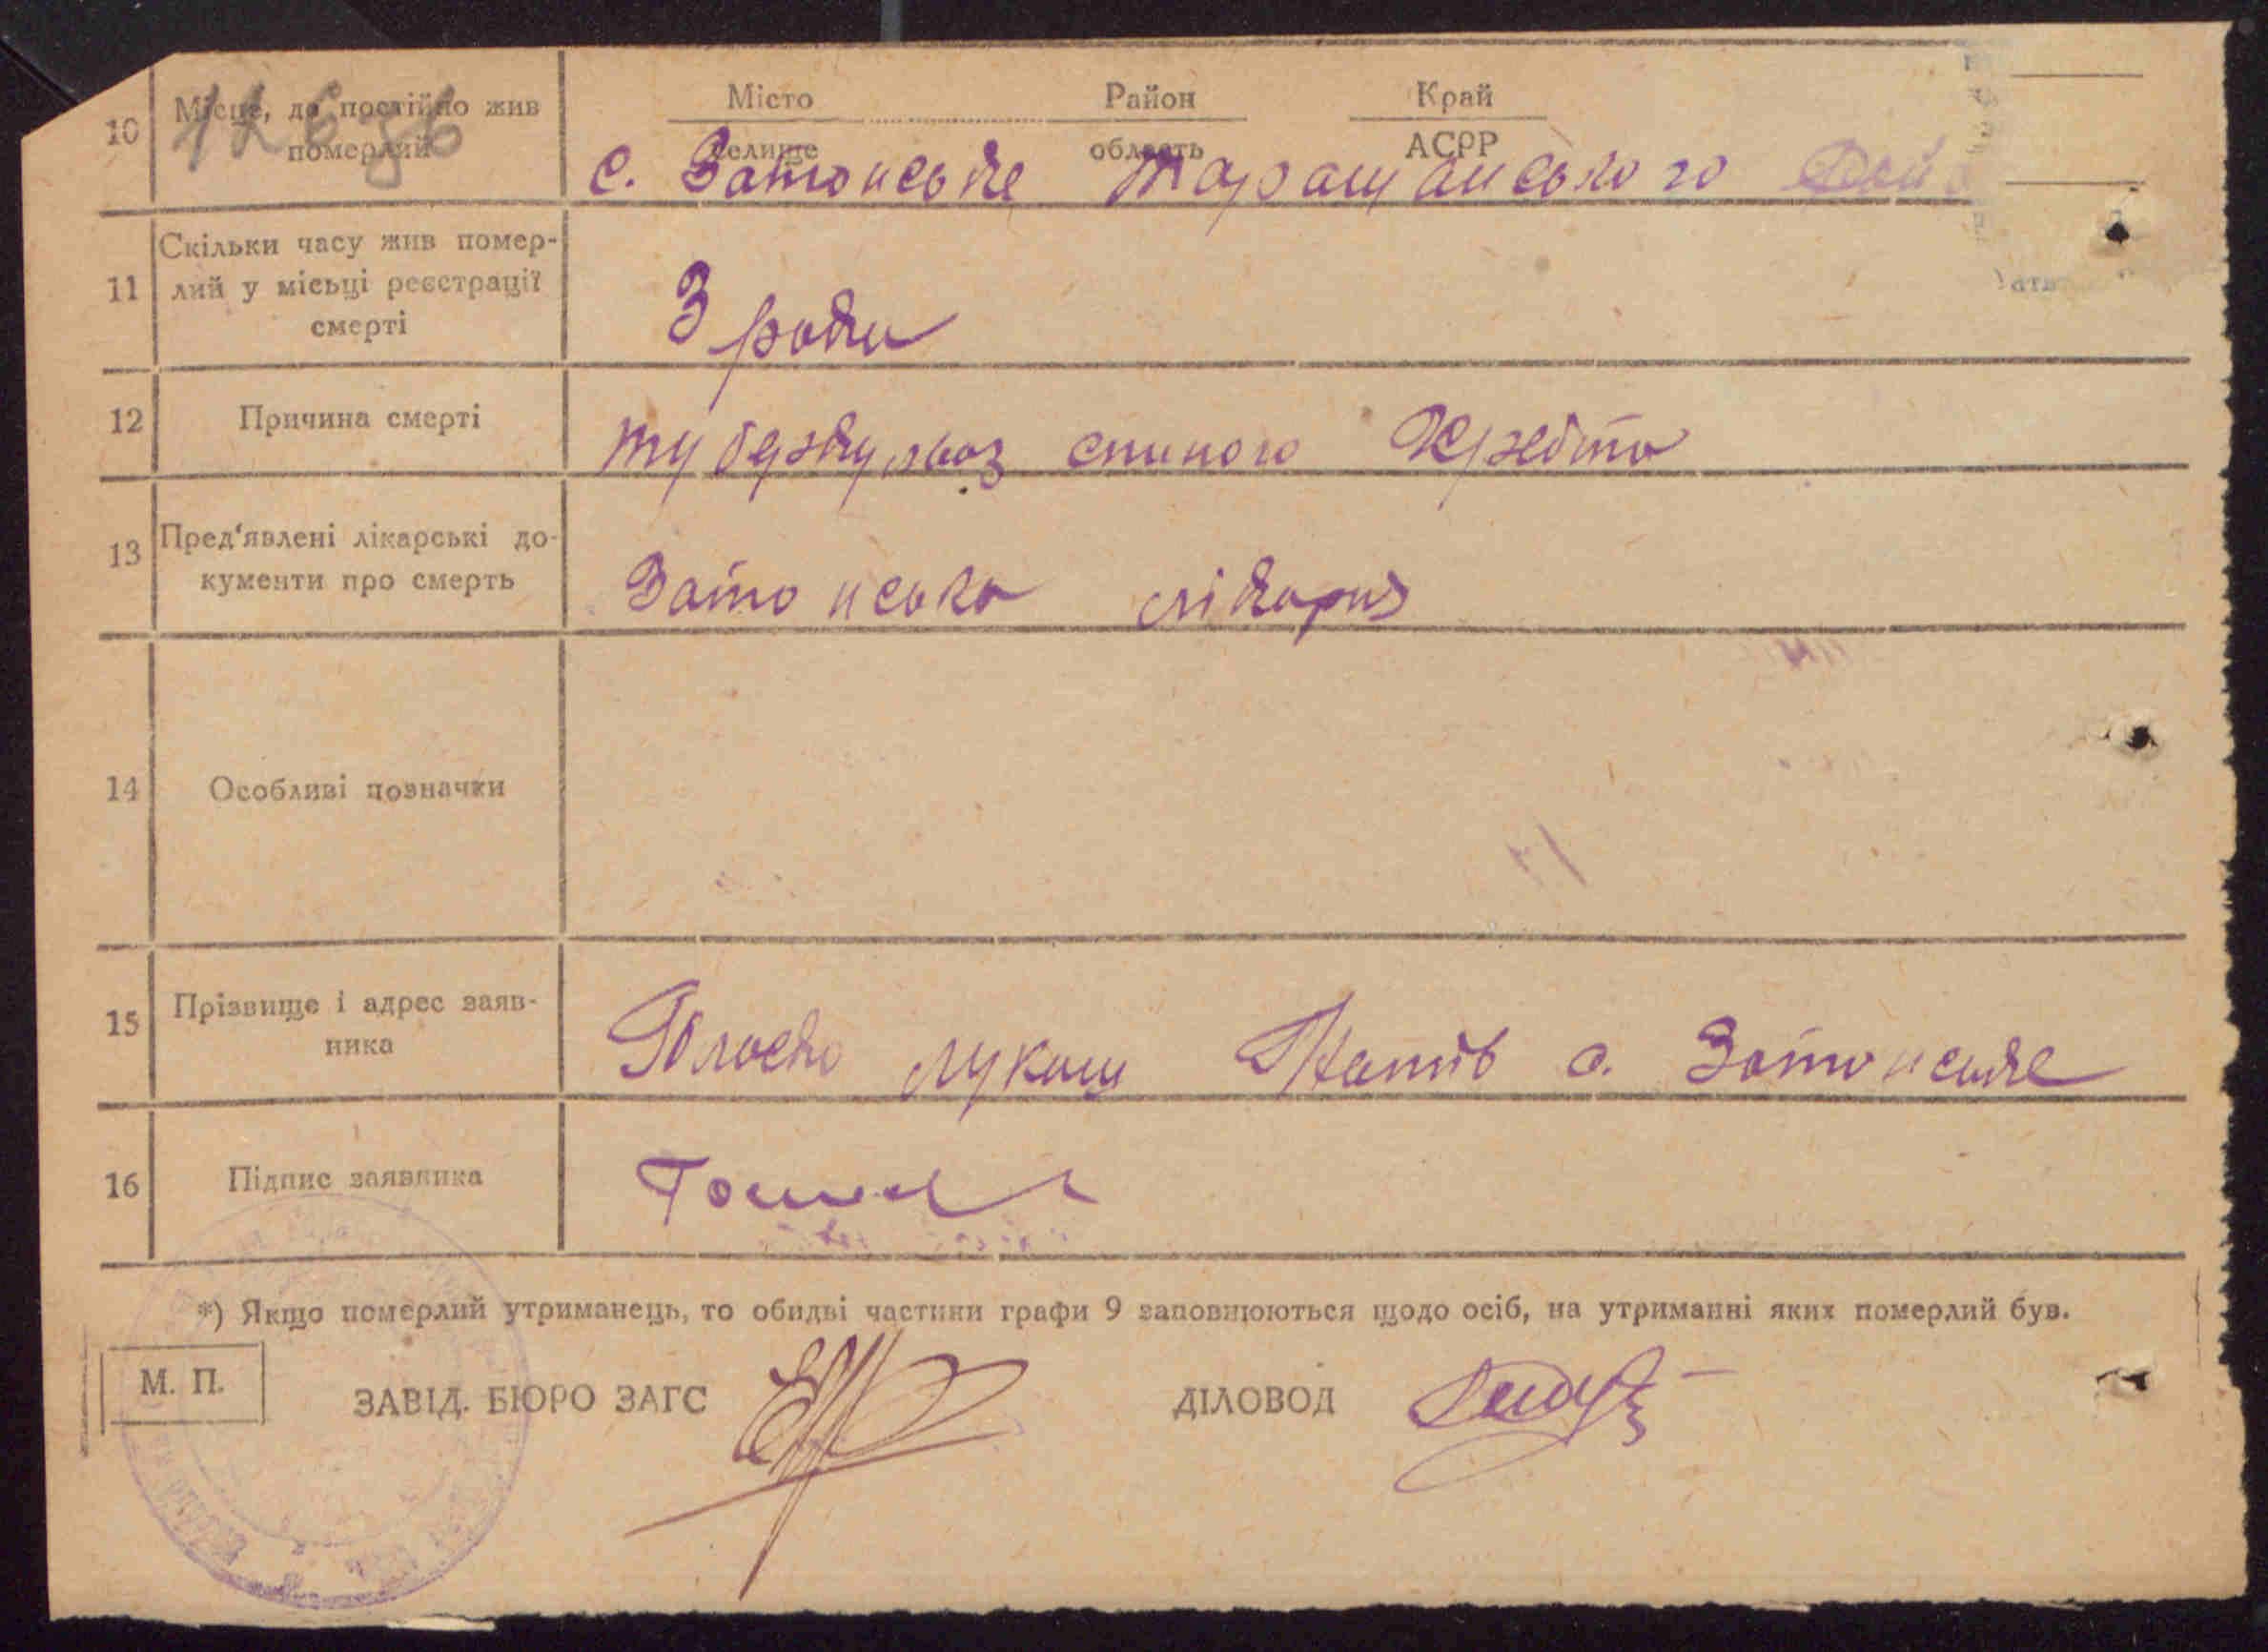 10 Місце, де постійно жив Місто Район Край
померлий селище область АСРР
с. Затонське Таращанського Рай
Скільки часу жив помер-
11 лий у місьці реєстрації
смерті
3 роки
12 Причина смерті
туберкульоз спиного хребта
13 Пред'явлені лікарські до-
кументи про смерть
Затонська лікарня
14 Особливі позначки
15 Прізвище і адрес заяв-
ника
Лукаш с. Затонське
16 Підпис заявника
*) Якщо померлий утриманець, то обидві частини графи 9 заповнюються щодо осіб, на утриманні яких померлий був.
М. П. ЗАВІД. БЮРО ЗАГС ДІЛОВОД